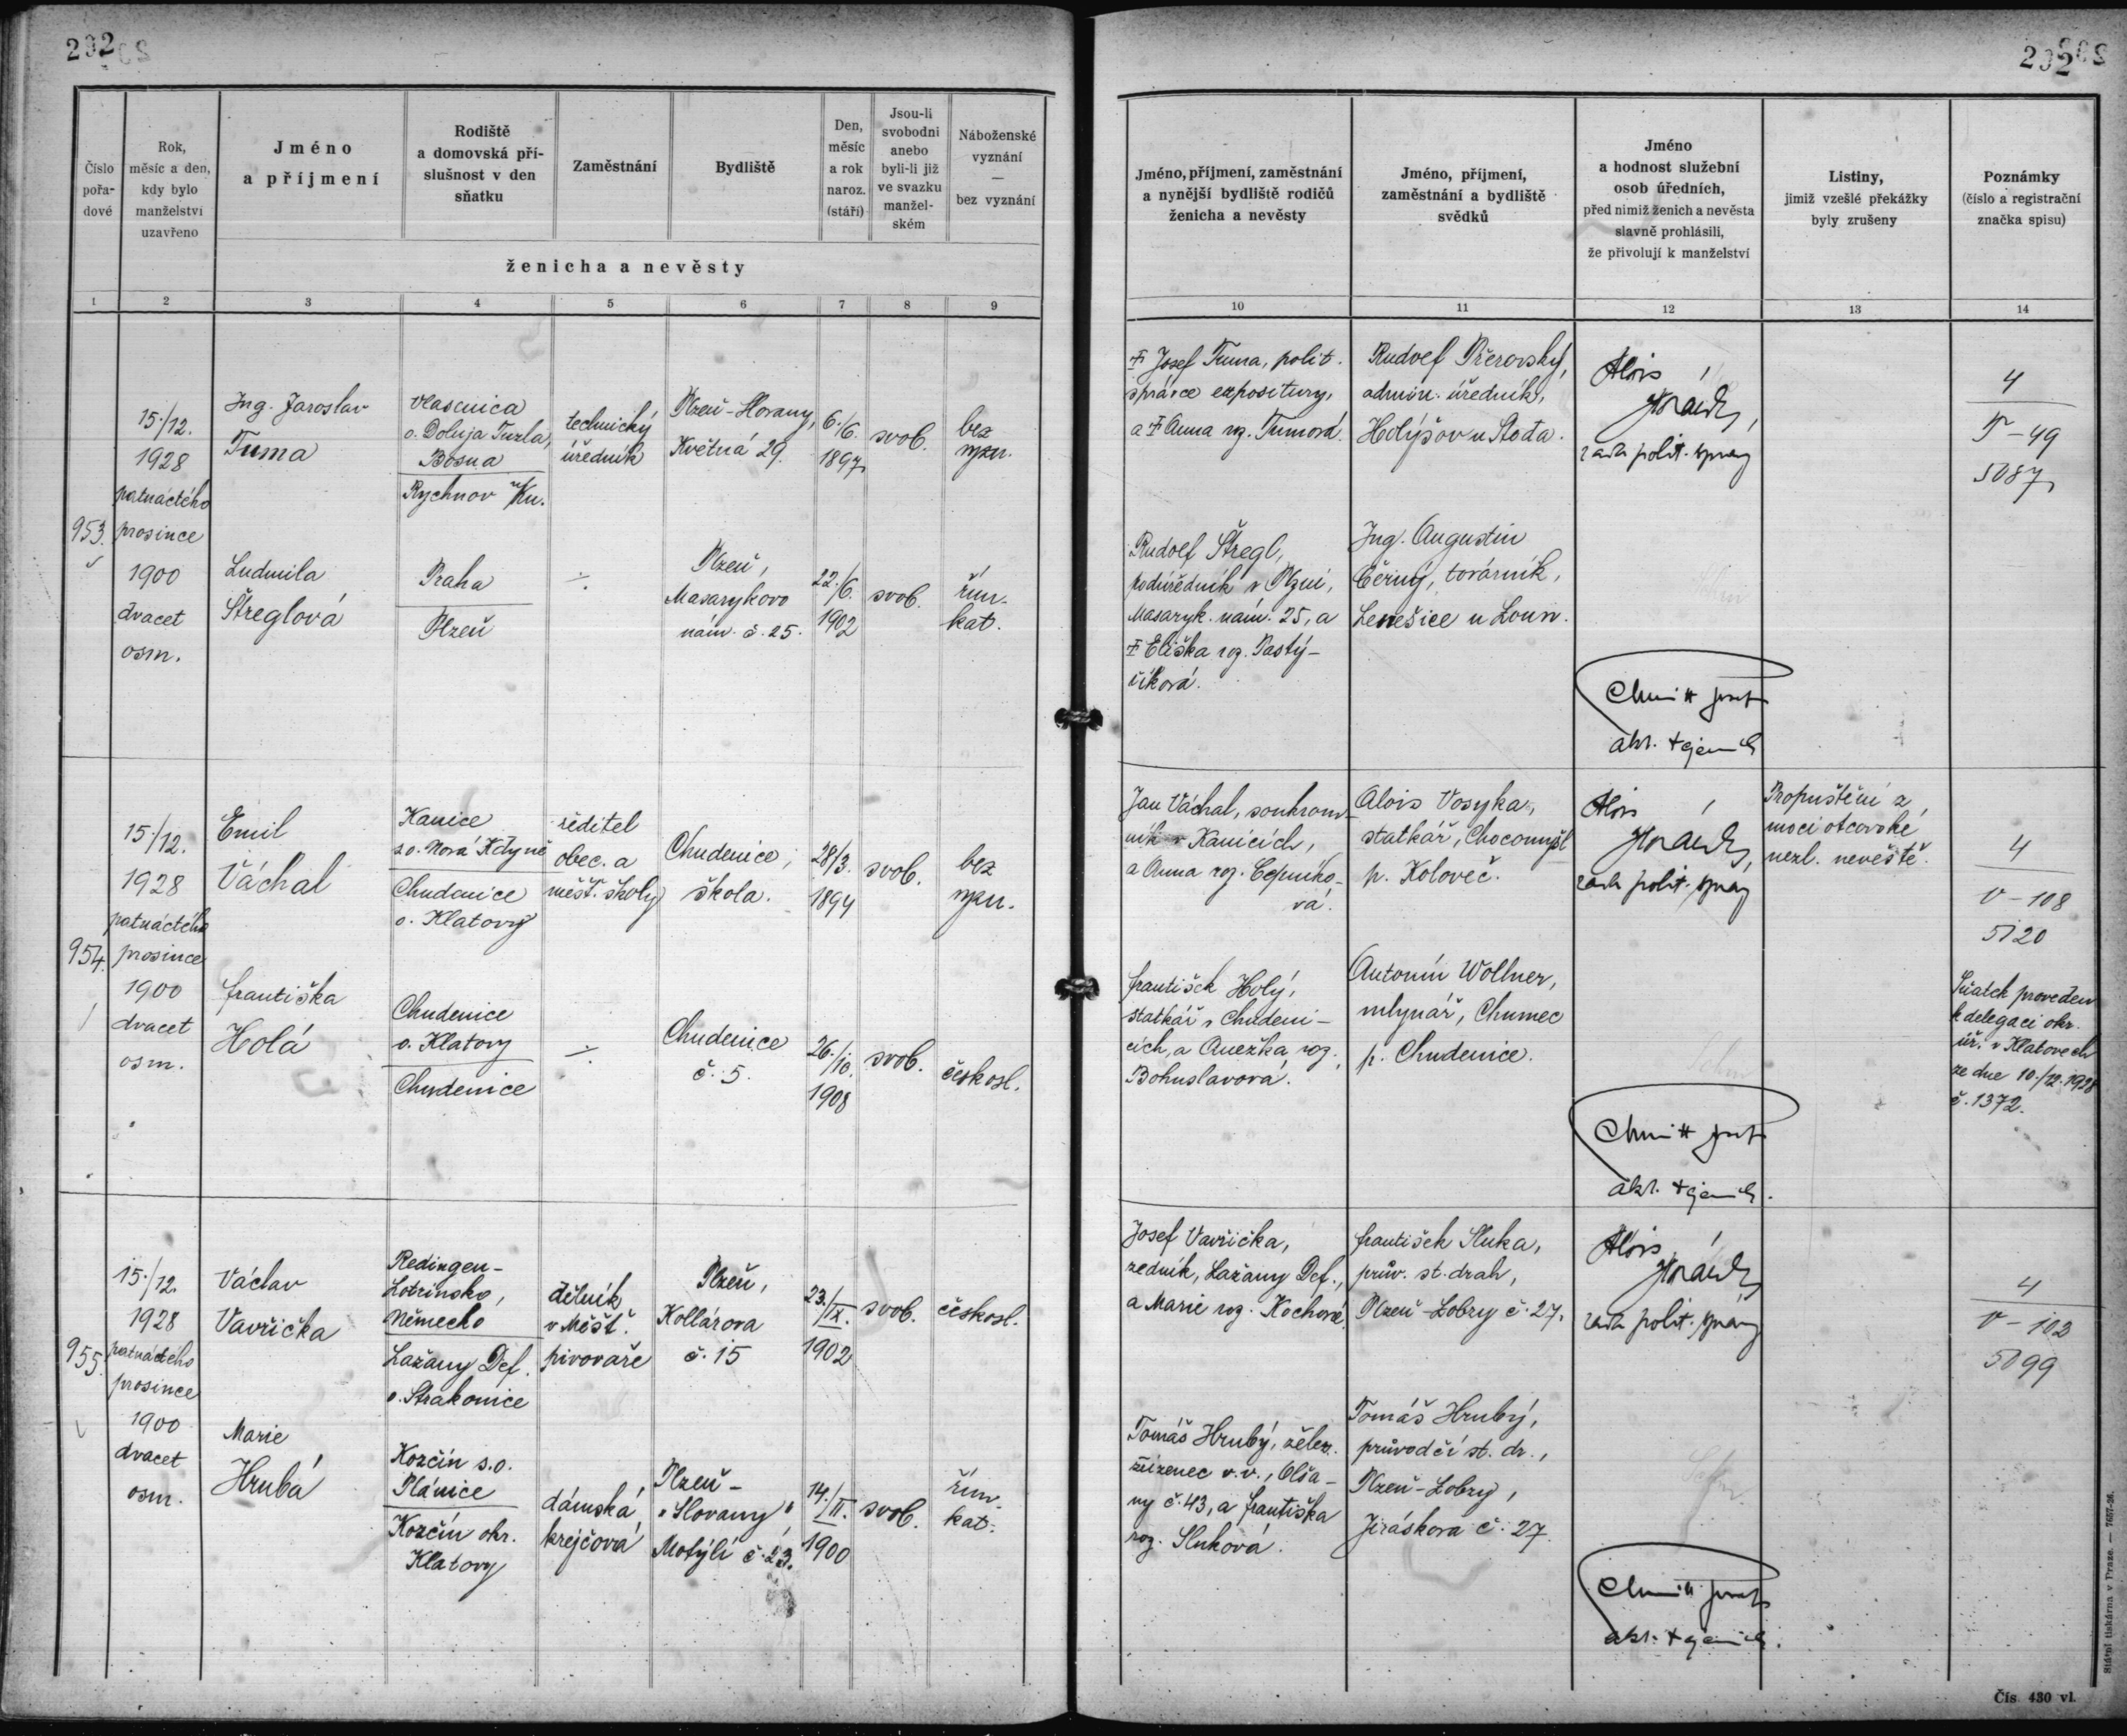 202
202
Číslo
pořa-
dové
Rok,
měsíc a den,
kdy bylo
manželství
uzavřeno
Jméno
a příjmení
Rodiště
a domovská pří-
slušnost v den
sňatku
Zaměstnání
Bydliště
Den,
měsíc
a rok
naroz.
(stáří)
Jsou-li
svobodni
anebo
byli-li již
ve svazku
manžel-
ském
Náboženské
vyznání
—
bez vyznání
ženicha a nevěsty
1 2 3 4 5 6 7 8 9
Jméno, příjmení, zaměstnání
a nynější bydliště rodičů
ženicha a nevěsty
Jméno, příjmení,
zaměstnání a bydliště
svědků
Jméno
a hodnost služební
osob úředních,
před nimiž ženich a nevěsta
slavně prohlásili,
že přivolují k manželství
Listiny,
jimiž vzešlé překážky
byly zrušeny
Poznámky
(číslo a registrační
značka spisu)
10 11 12 13 14
953.
15./12.
1928
patnáctého
prosince
1900
dvacet
osm.
Ing. Jaroslav
Tuma
Vlasenica
o. Dolnja Tuzla,
Bosna
Rychnov n/Kn.
technický
úředník
Plzeň-Slovany,
Květná 29.
6./6.
1897
svob.
bez
vyzn.
Ludmila
Štreglová
Praha
Plzeň
÷
Plzeň,
Masarykovo
nám. č. 25.
22./6.
1902
svob.
řím.
kat.
† Josef Tuma, polit.
správce expositury,
a † Anna roz. Tumová.
Rudolf Přerovský,
admin. úředník,
Holýšov u Stoda.
Alois
rada polit. správy
4
T-49
5087
Rudolf Štregl,
podúředník v Plzni,
Masaryk. nám. 25, a
† Eliška roz. Pastý-
říková.
Ing. Augustin
Černý, továrník,
Lenešice u Loun.
954.
15./12.
1928
patnáctého
prosince
1900
dvacet
osm.
Emil
Váchal
Kanice
s.o. Nová Kdyně
Chudenice
o. Klatovy
ředitel
obec. a
měšť. školy
Chudenice,
škola.
28/3.
1894
svob.
bez
vyzn.
Františka
Holá
Chudenice
o. Klatovy
Chudenice
÷
Chudenice
č. 5.
26./10.
1908
svob.
českosl.
Jan Váchal, soukrom-
ník v Kanicích,
a Anna roz.
vá.
Alois Vosyka,
statkář, Chocomyšl
p. Koloveč.
Alois
rada polit. správy
Propuštění z
moci otcovské
nezl. nevěstě.
4
V-108
5120
František Holý,
statkář v Chudeni-
cích, a Anežka roz.
Bohuslavová.
Antonín Wollner,
mlynář, Chumec
p. Chudenice.
Sňatek proveden
k delegaci okr.
úř. v Klatovech
ze dne 10./12.1928
č. 1372.
955.
15./12.
1928
patnáctého
prosince
1900
dvacet
osm.
Václav
Vavřička
Redingen-
Lotrinsko,
Německo
Lažany Def.
o. Strakonice
dělník
v Měšť.
pivovaře
Plzeň,
Kollárova
č. 15
23./IX.
1902
svob.
českosl.
Marie
Hrubá
Kozčín s.o.
Plánice
Kozčín okr.
Klatovy
dámská
krejčová
Plzeň-
"Slovany"
Motýlí č. 23.
14./II.
1900
svob.
řím.
kat.
Josef Vavřička,
zedník, Lažany Def.,
a Marie roz. Kochová.
František Sluka,
prův. st. drah,
Plzeň-Lobzy č. 27.
Alois
rada polit. správy
4
V-102
5099
Tomáš Hrubý, želez.
zřízenec v.v., Olša-
ny č. 43, a Františka
roz. Sluková.
Tomáš Hrubý,
průvodčí st. dr.,
Plzeň-Lobzy,
Jiráskova č. 27.
Státní tiskárna v Praze. — 7657-26.
Čís. 430 vl.